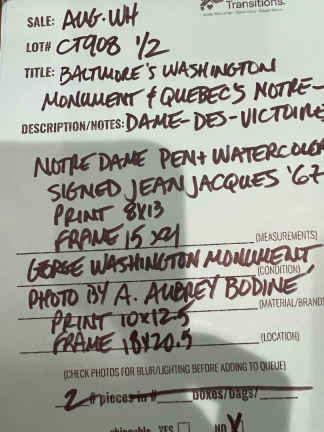 Transitions.
SALE: AUG. WH
LOT# CT908 1/2
TITLE: BALTIMORE'S WASHINGTON
MONUMENT & QUEBEC'S NOTRE-
DESCRIPTION/NOTES: DAME-DES-VICTOIRES
NOTRE DAME PEN + WATERCOLOR
SIGNED JEAN JACQUES '67
PRINT 8X13
FRAME 15 X21
(MEASUREMENTS)
GEORGE WASHINGTON MONUMENT
(CONDITION)
PHOTO BY A. AUBREY BODINE
(MATERIAL/BRAND
PRINT 10X12.5
FRAME 18X20.5
(LOCATION)
(CHECK PHOTOS FOR BLUR/LIGHTING BEFORE ADDING TO QUEUE)
2 # pieces in # boxes/bags/
shippable YES NO X